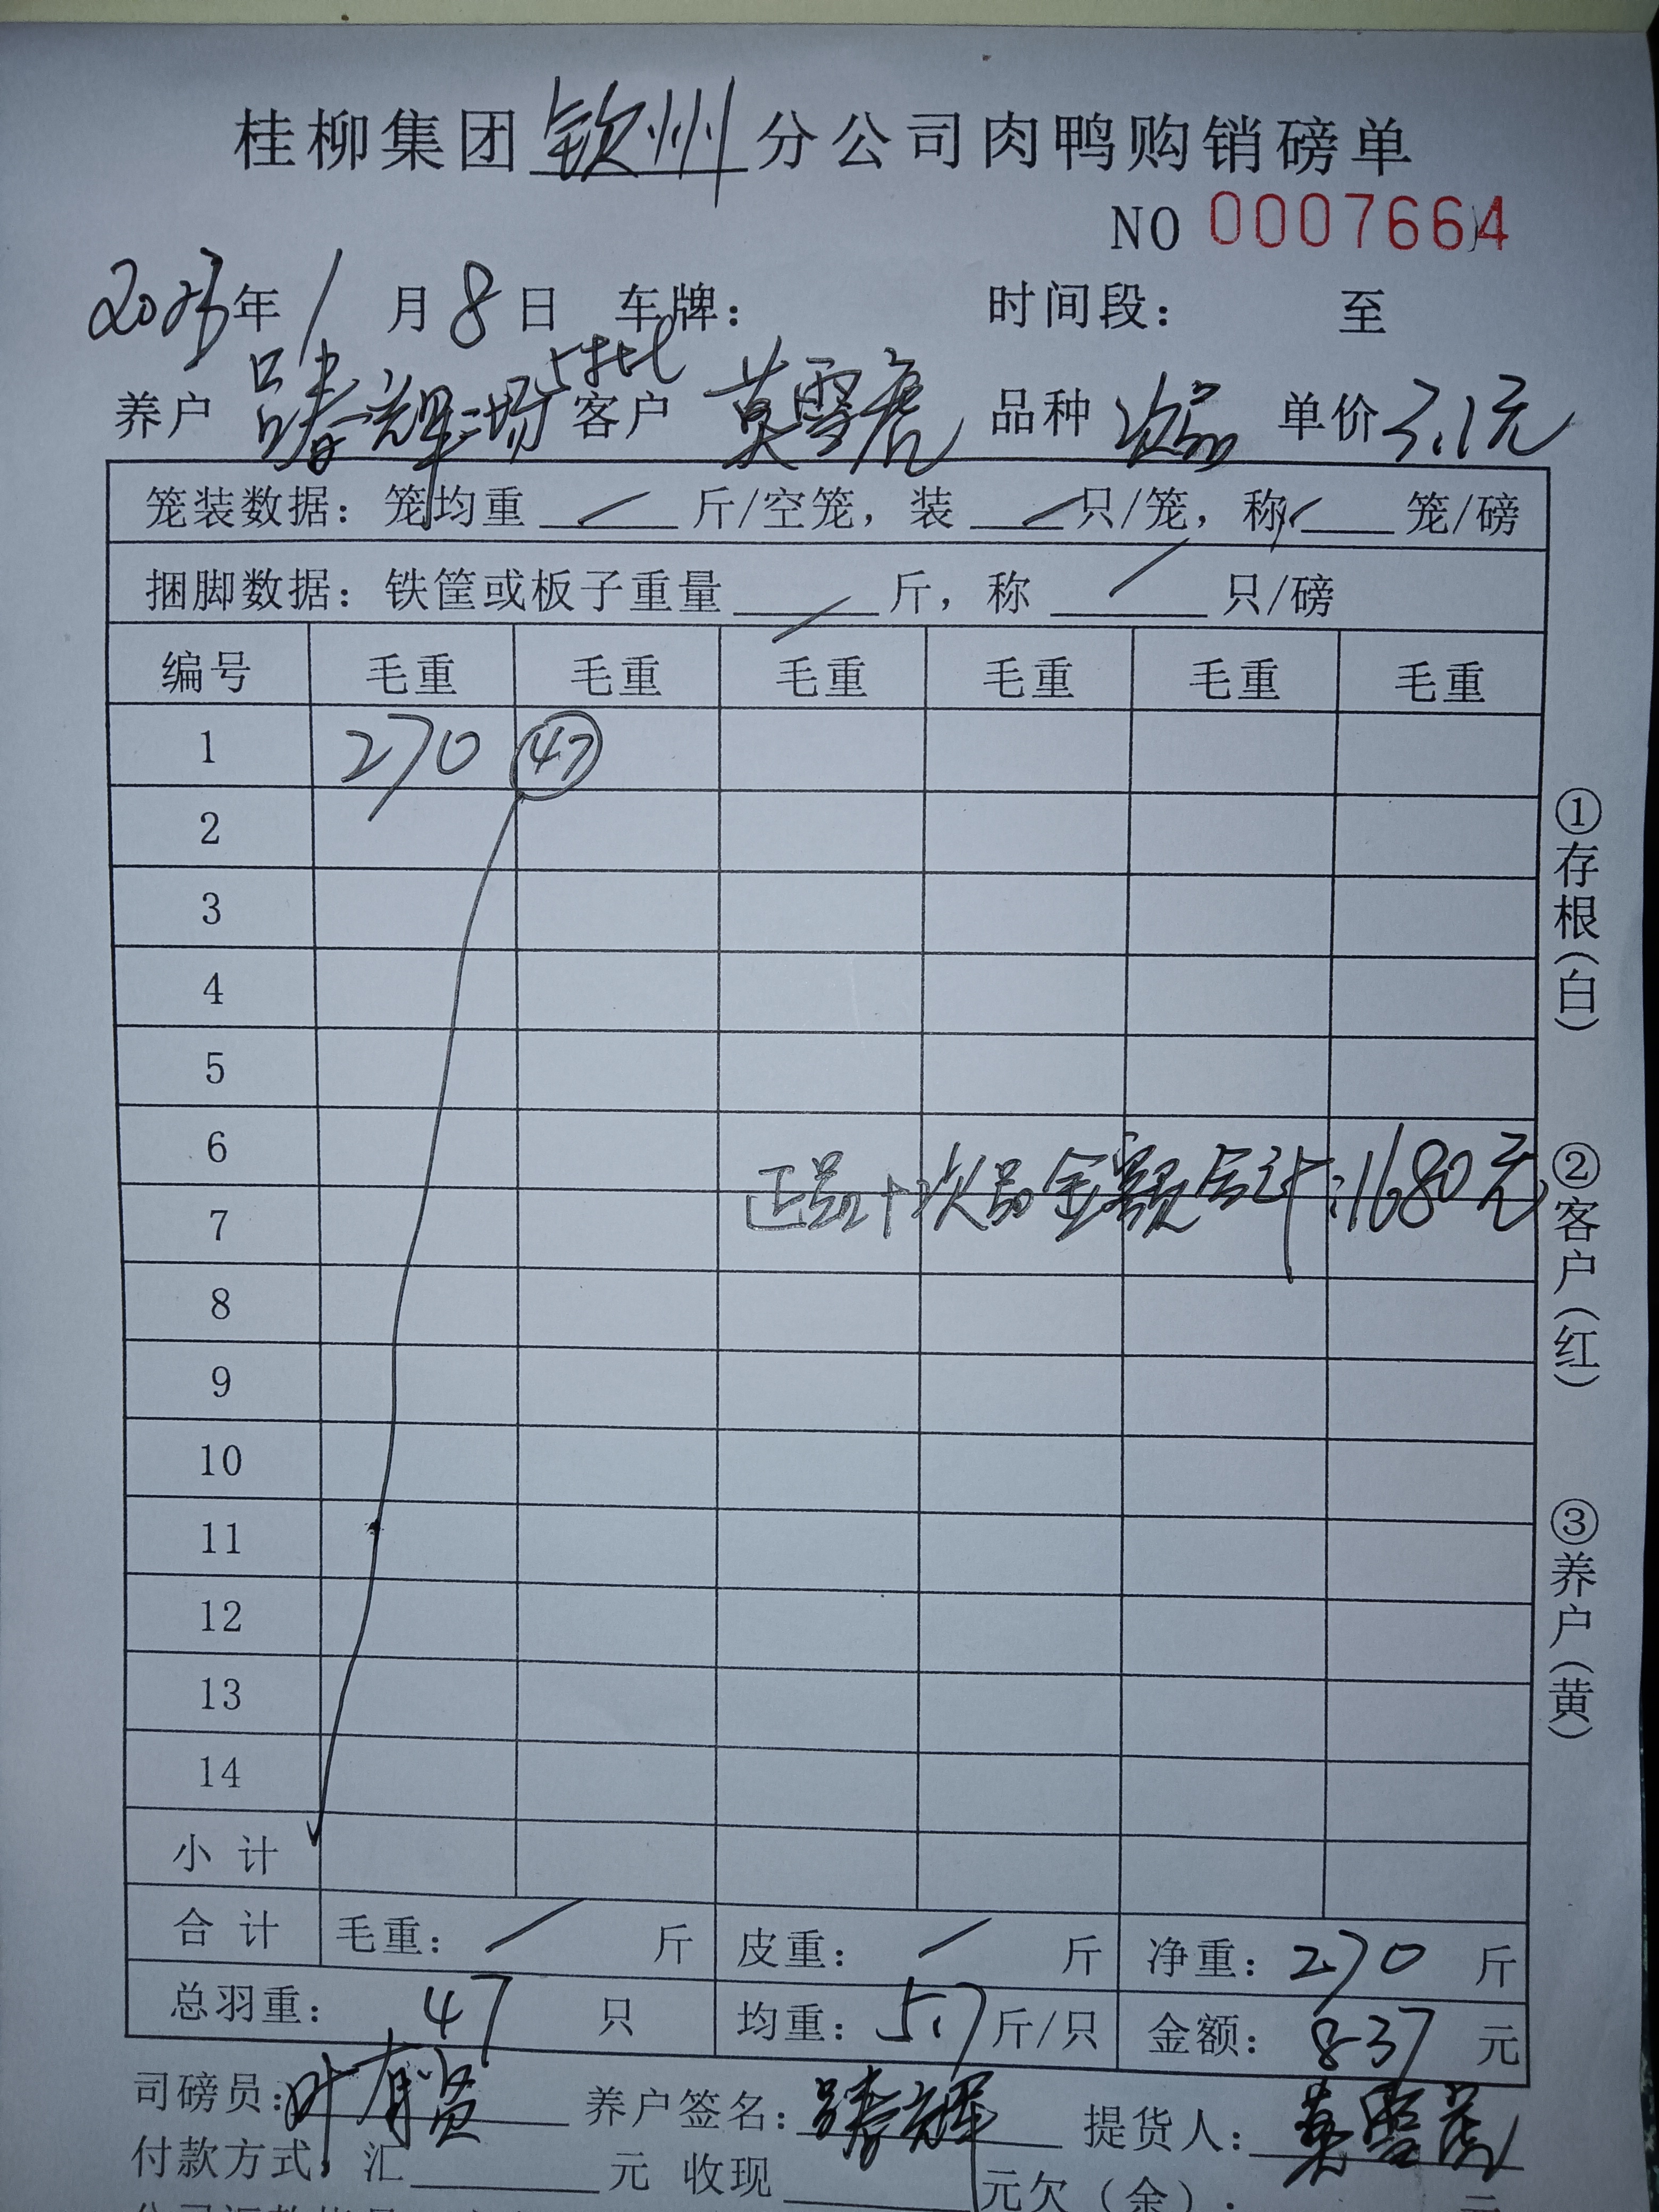 桂柳集团钦州分公司肉鸭购销磅单
NO 0007664
2023年1月8日 车牌: 时间段: 至
养户 吕春辉二场5批 客户 莫雪 品种 次品 单价 3.1元
笼装数据: 笼均重 / 斤/空笼, 装 / 只/笼, 称 / 笼/磅
捆脚数据: 铁筐或板子重量 / 斤, 称 / 只/磅
编号 毛重 毛重 毛重 毛重 毛重 毛重
1 270 47
2
3
4
5
6
7
正品+次品金额合计:1680元
8
9
10
11
12
13
14
小计
合计 毛重: / 斤 皮重: / 斤 净重: 270 斤
总羽重: 47 只 均重: 5.7 斤/只 金额: 837 元
司磅员: 叶有贤 养户签名: 吕春辉 提货人: 莫雪
付款方式: 汇 元 收现 元 欠(余):
①存根(白)
②客户(红)
③养户(黄)